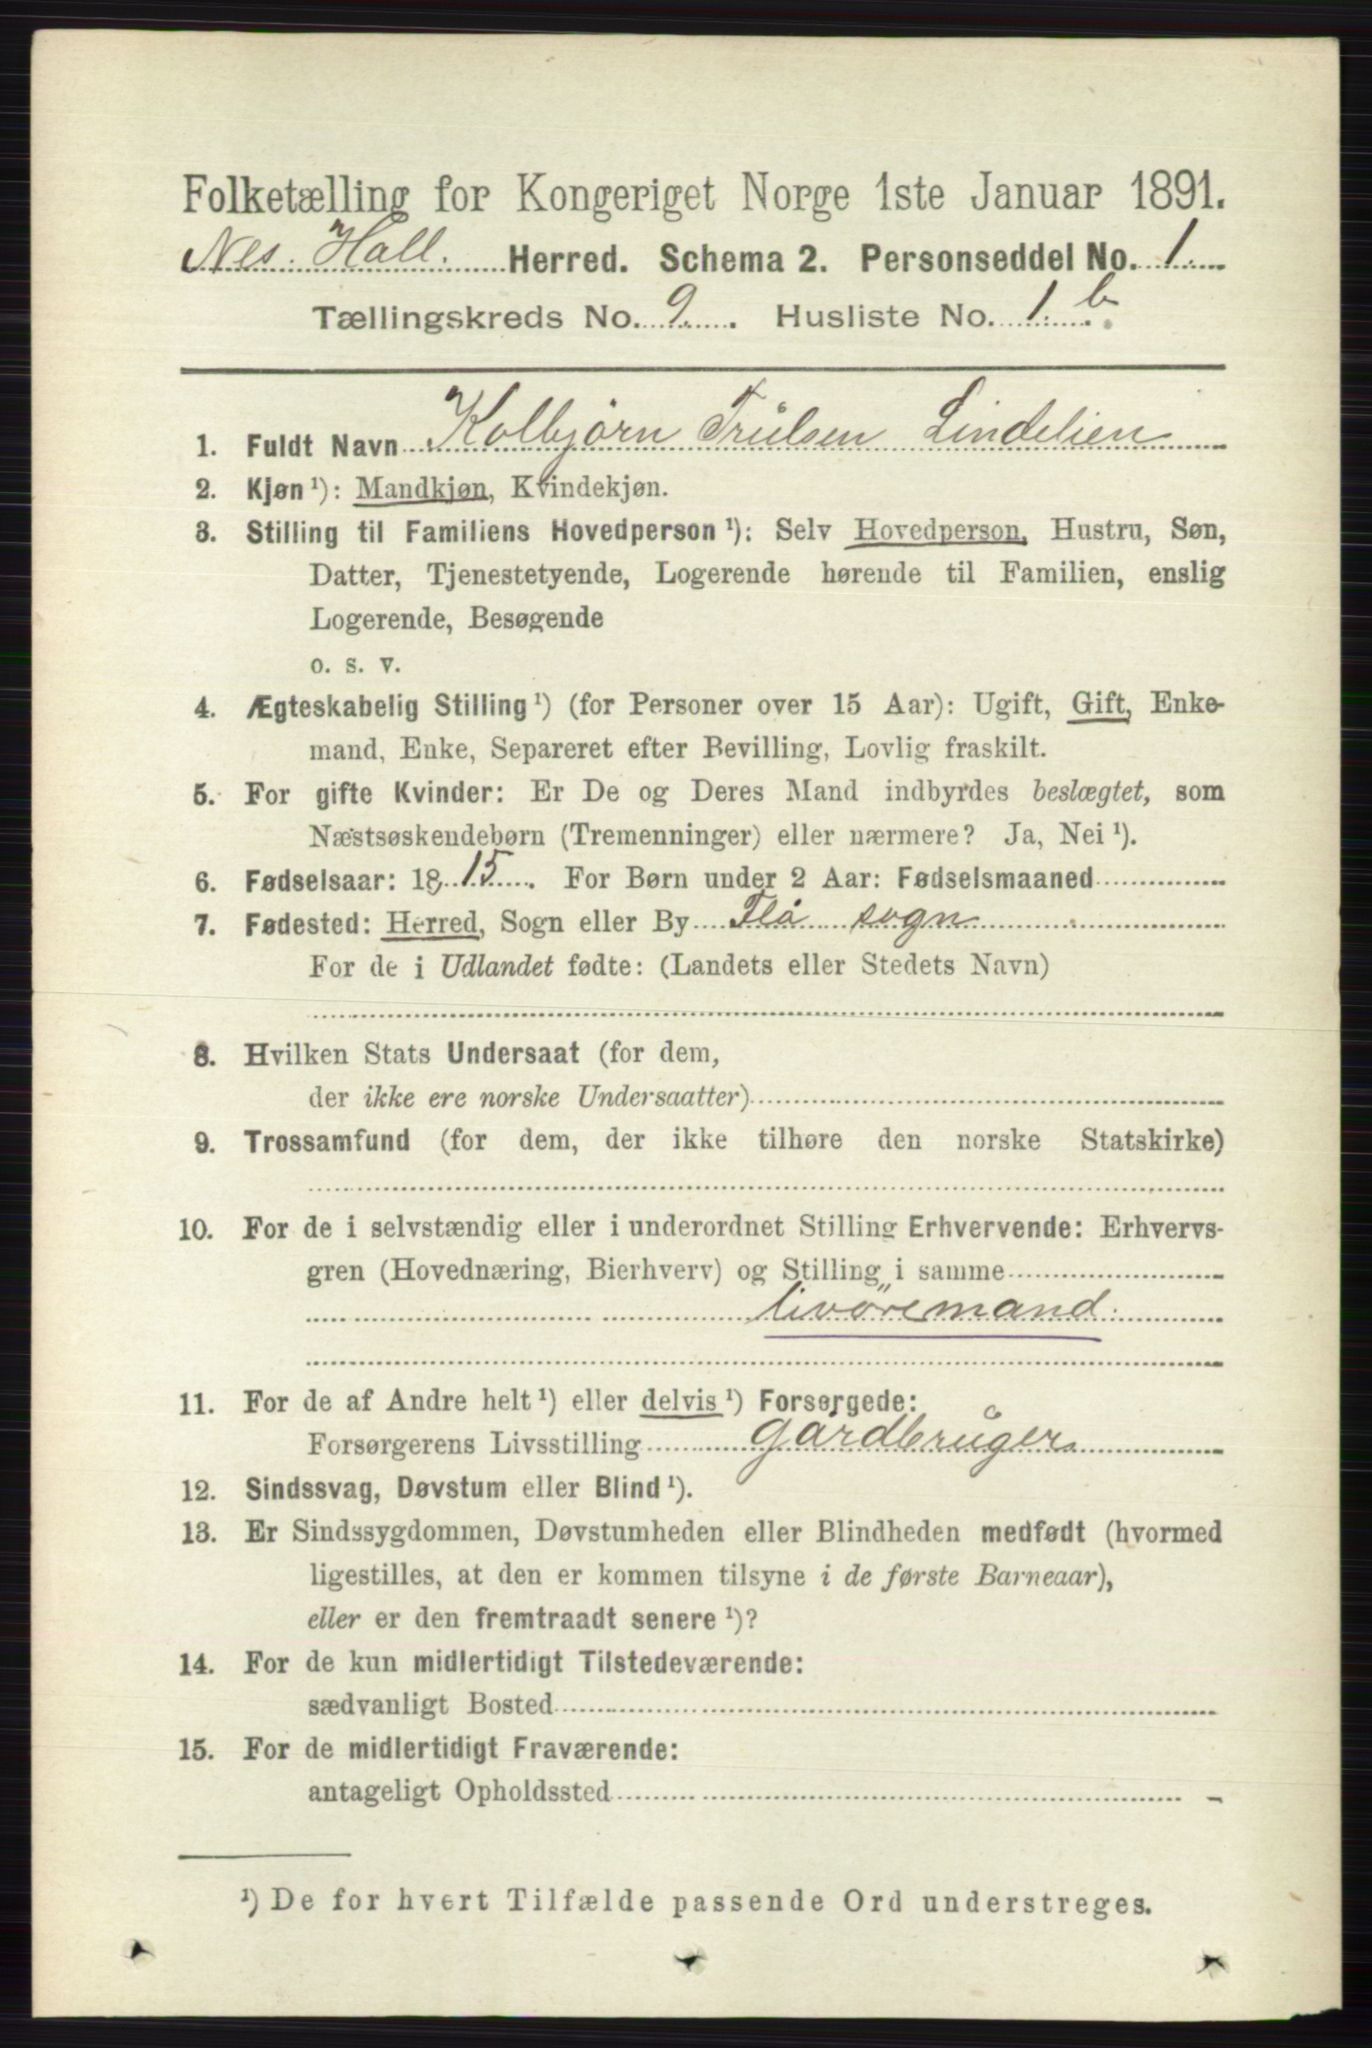 Folketælling for Kongeriget Norge 1ste Januar 1891.
Nes. Hall. Herred. Schema 2. Personseddel No. 1.
Tællingskreds No. 9. Husliste No. 1. b.
1. Fuldt Navn Kolbjørn Trulsen Lindelien
2. Kjøn¹): Mandkjøn, Kvindekjøn.
3. Stilling til Familiens Hovedperson¹): Selv Hovedperson, Hustru, Søn,
Datter, Tjenestetyende, Logerende hørende til Familien, enslig
Logerende, Besøgende
o. s. v.
4. Ægteskabelig Stilling¹) (for Personer over 15 Aar): Ugift, Gift, Enke-
mand, Enke, Separeret efter Bevilling, Lovlig fraskilt.
5. For gifte Kvinder: Er De og Deres Mand indbyrdes beslægtet, som
Næstsøskendebørn (Tremenninger) eller nærmere? Ja, Nei¹).
6. Fødselsaar: 18 15. For Børn under 2 Aar: Fødselsmaaned
7. Fødested: Herred, Sogn eller By Flå sogn
For de i Udlandet fødte: (Landets eller Stedets Navn)
8. Hvilken Stats Undersaat (for dem,
der ikke ere norske Undersaatter)
9. Trossamfund (for dem, der ikke tilhøre den norske Statskirke)
10. For de i selvstændig eller i underordnet Stilling Erhvervende: Erhvervs-
gren (Hovednæring, Bierhverv) og Stilling i samme
livöremand.
11. For de af Andre helt¹) eller delvis¹) Forsørgede:
Forsørgerens Livsstilling gardbrůger
12. Sindssvag, Døvstum eller Blind¹).
13. Er Sindssygdommen, Døvstumheden eller Blindheden medfødt (hvormed
ligestilles, at den er kommen tilsyne i de første Barneaar),
eller er den fremtraadt senere¹)?
14. For de kun midlertidigt Tilstedeværende:
sædvanligt Bosted
15. For de midlertidigt Fraværende:
antageligt Opholdssted
¹) De for hvert Tilfælde passende Ord understreges.